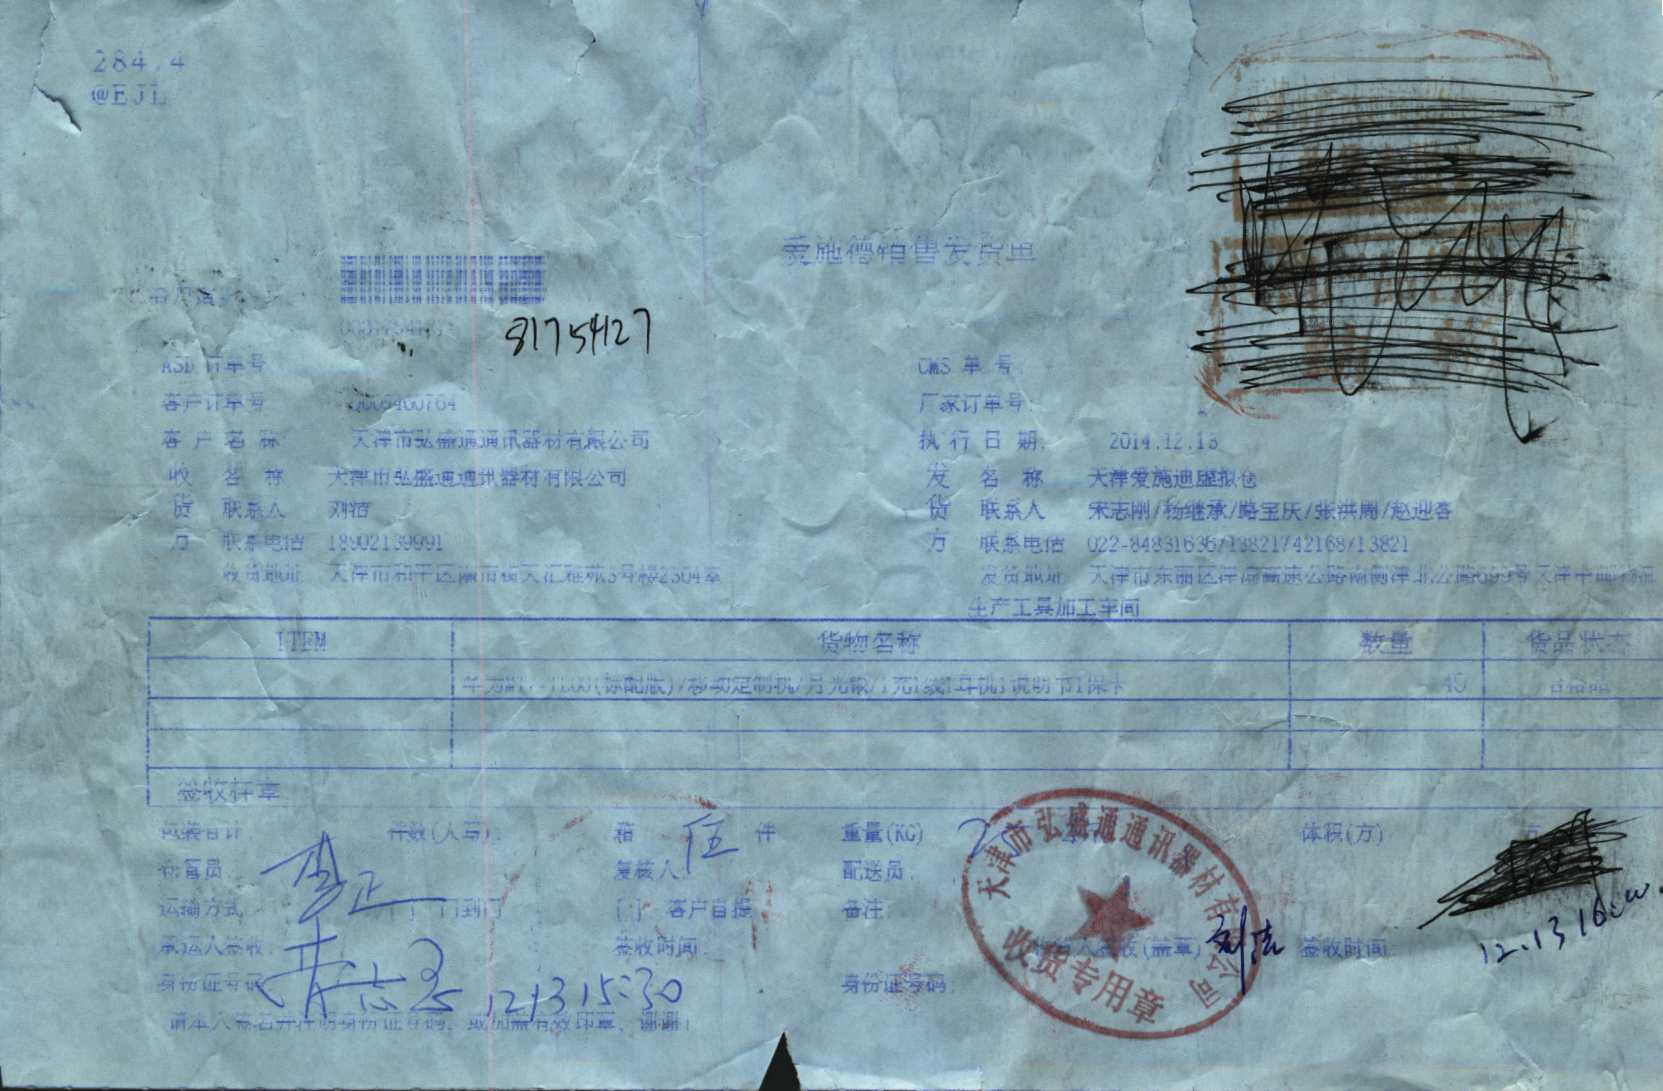 284.4
@EJL
爱施德销售发货单
81754127
ASD 订单号
CMS 单 号
客户订单号 0006460764
厂家订单号:
客 户 名 称 天津市弘盛通通讯器材有限公司
执 行 日 期: 2014.12.13
收 名 称 天津市弘盛通通讯器材有限公司
发 名 称 天津爱施迪虚拟仓
货 联系人 刘洁
货 联系人 宋志刚/杨继承/路宝庆/张洪周/赵迎春
方 联系电话 18902139991
方 联系电话 022-84831636/13821742168/13821
收货地址 天津市和平区南市街天汇雅苑3号楼2304室
发货地址 天津市东丽区津海高速公路南侧津北公路699号天津中邮物流
生产工具加工车间
ITEM 货物名称 数量 货品状态
(标配版)/移动定制机/月光银/1充1线1耳机1说明书1保卡 40 合格品
签收样章
包装合计: 件数(大写): 箱 伍 件 重量(KG) 25 体积(方) 方
仓管员: 李正 复核人: 配送员:
运输方式: 门到门 [ ] 客户自提 备注:
承运人签收: 签收时间: 收货人签收(盖章) 刘洁 签收时间: 12.13 16:00
身份证号码: 12/3 15:30 身份证号码:
请本人签名并注明身份证号码, 或加盖有效印章, 谢谢!
天津市弘盛通通讯器材有限公司
收货专用章